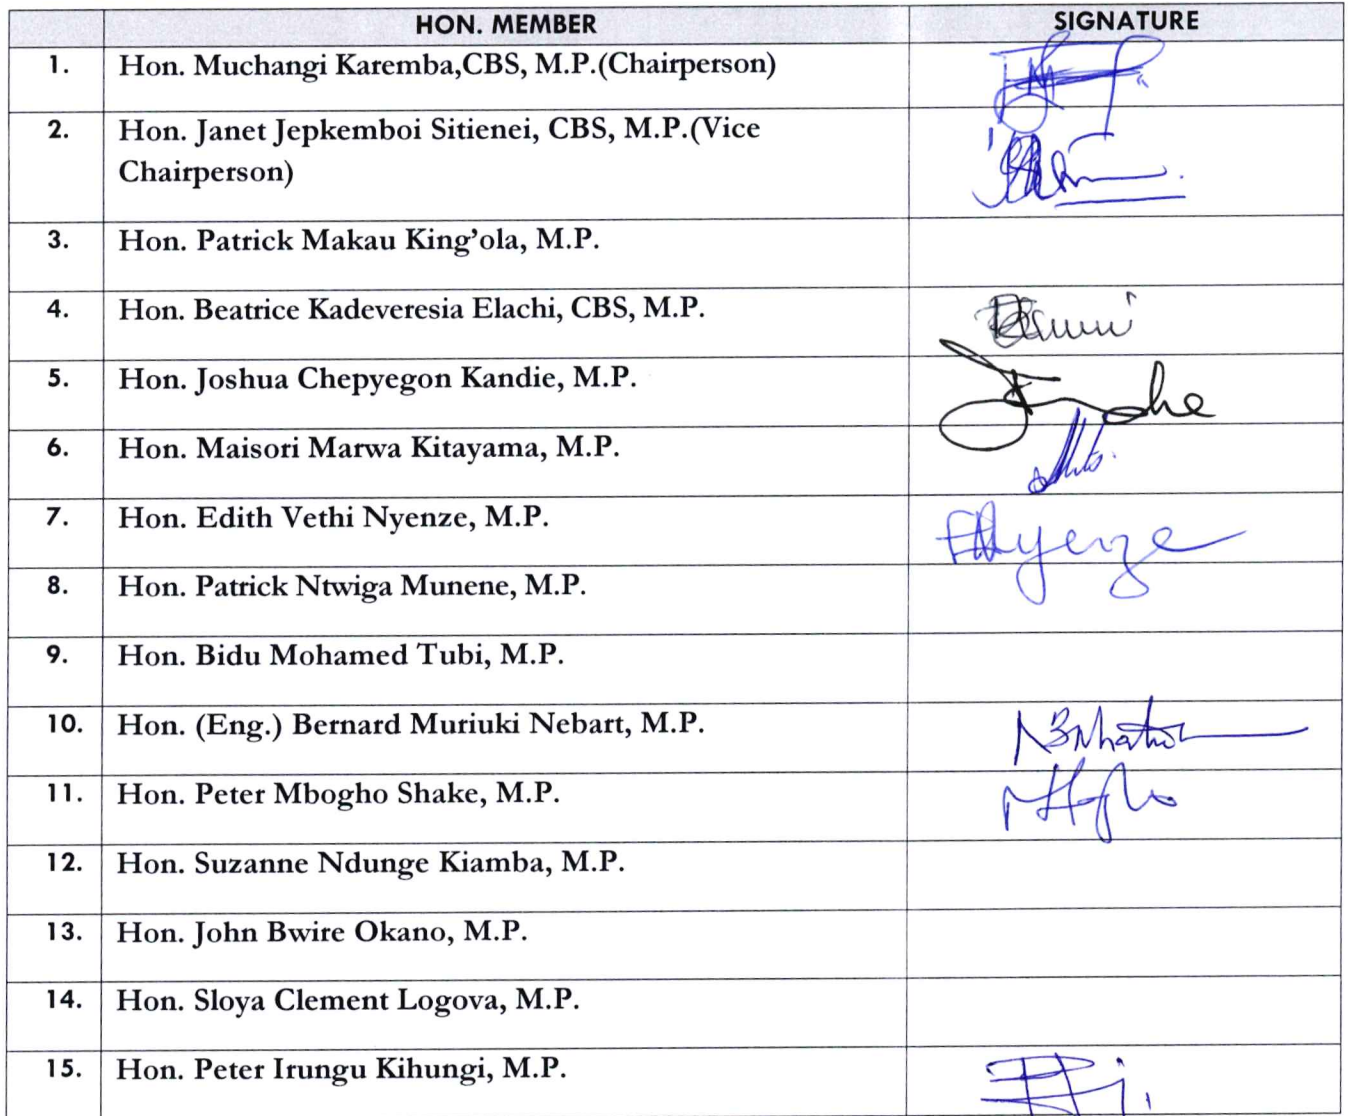 HON. MEMBER SIGNATURE
1. Hon. Muchangi Karemba,CBS, M.P.(Chairperson)
2. Hon. Janet Jepkemboi Sitienei, CBS, M.P.(Vice
Chairperson)
3. Hon. Patrick Makau King’ola, M.P.
4. Hon. Beatrice Kadeveresia Elachi, CBS, M.P.
5. Hon. Joshua Chepyegon Kandie, M.P.
6. Hon. Maisori Marwa Kitayama, M.P.
7. Hon. Edith Vethi Nyenze, M.P.
8. Hon. Patrick Ntwiga Munene, M.P.
9. Hon. Bidu Mohamed Tubi, M.P.
10. Hon. (Eng.) Bernard Muriuki Nebart, M.P.
11. Hon. Peter Mbogho Shake, M.P.
12. Hon. Suzanne Ndunge Kiamba, M.P.
13. Hon. John Bwire Okano, M.P.
14. Hon. Sloya Clement Logova, M.P.
15. Hon. Peter Irungu Kihungi, M.P.